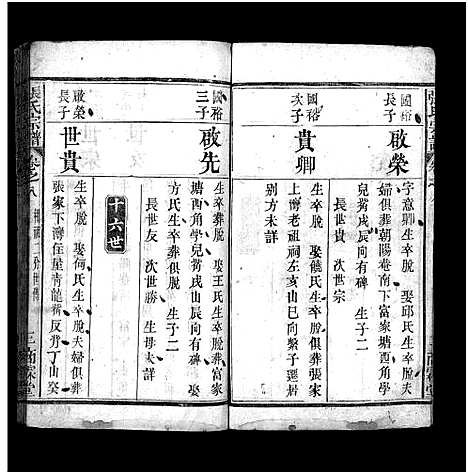 國裕
長子
啟榮
字意卿生卒脫 娶邱氏生卒脫
婦俱葬朝陽菴南下富家塘西角學
兒背戌辰向有碑 生子二
長世貴 次世宗
國裕
次子
貴卿
生卒脫 娶熊氏生卒脫俱葬張家
上灣老祖祠左亥山巳向繁子遷居
别方未詳
國裕
三子
啟先
生卒葬脫 娶王氏生卒脫葬富家
塘西角學兒背戌山辰向有碑 娶
方氏生卒葬俱脫 生子二
長世友 次世勝 生母未詳
十六世
啟榮
長子
世貴
生卒脫 娶何氏生卒脫夫婦俱葬
張家下灣住屋青龍背反背丁山癸
張氏宗譜
卷之八